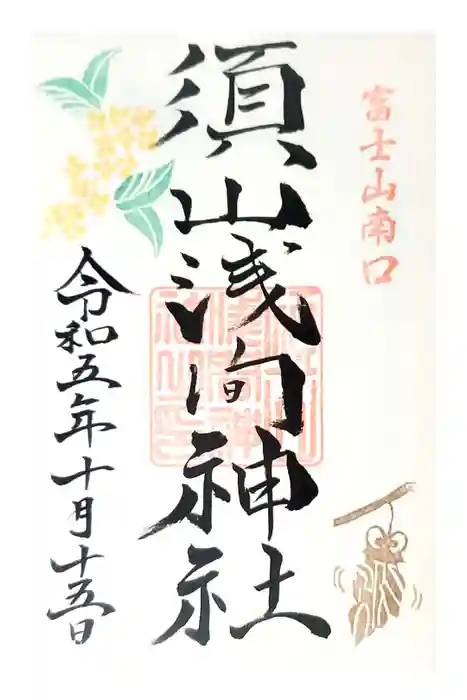 富士山南口
須山浅間神社
令和五年十月十五日